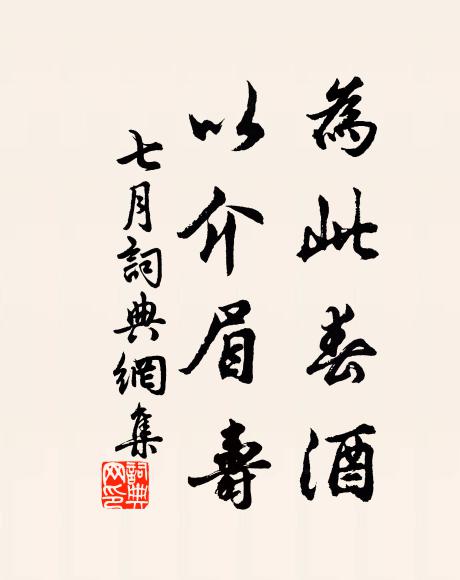 為此春酒
以介眉壽
七月詞典網集
詞典網印